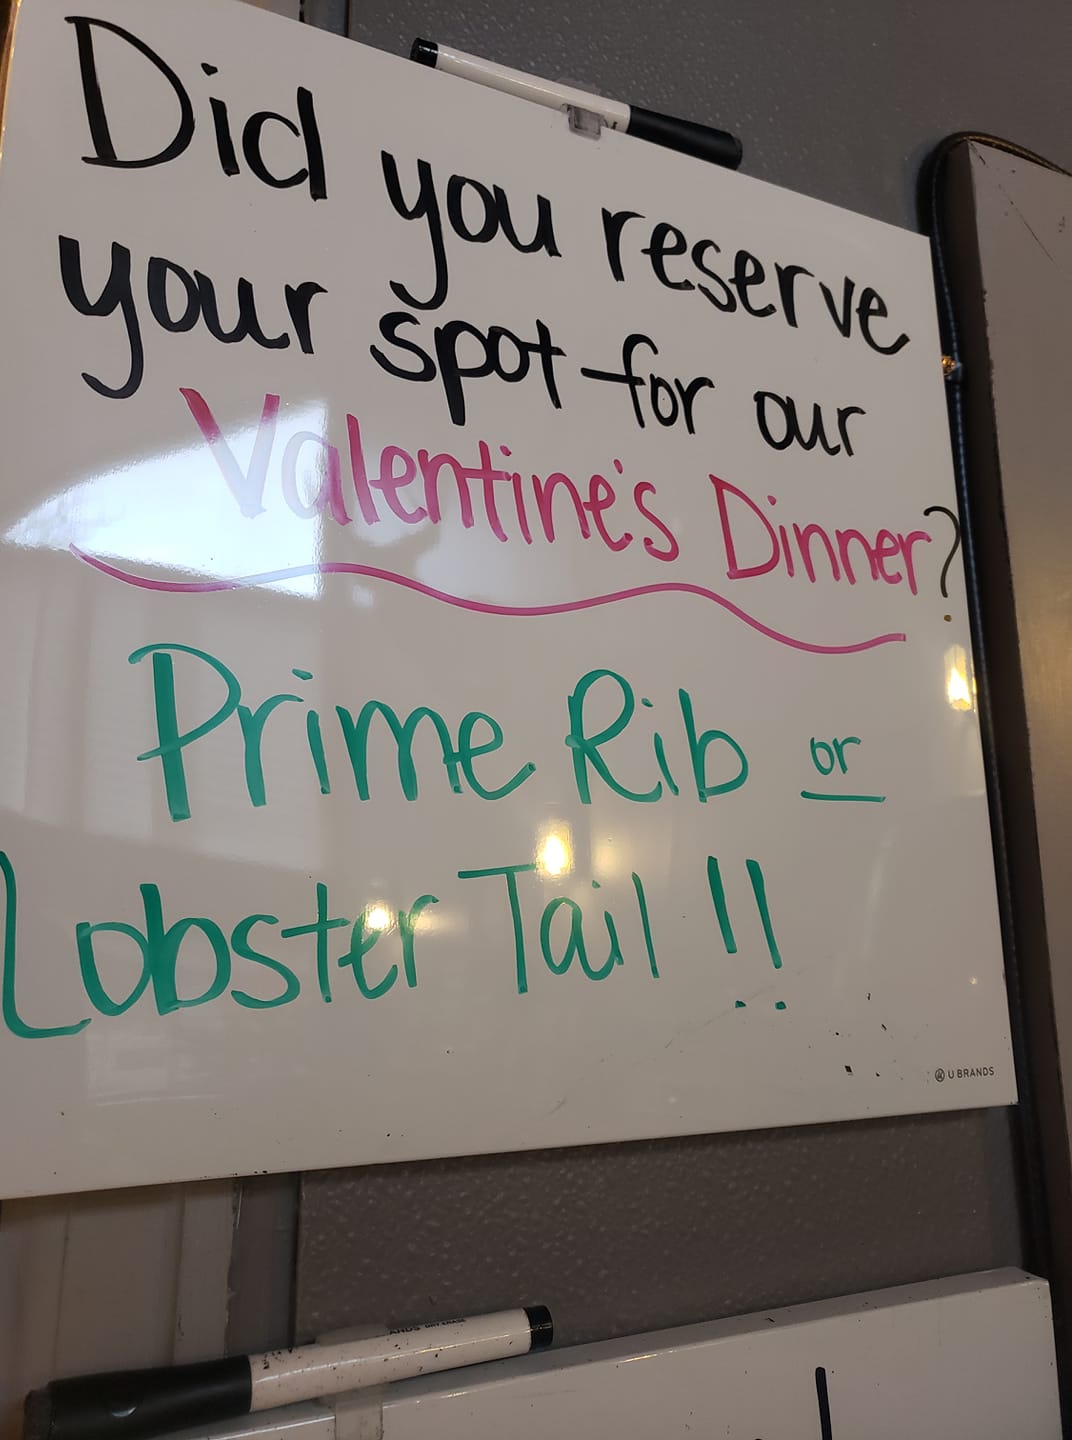 Did you reserve
your spot for our
Valentine's Dinner?
Prime Rib or
Lobster Tail !!
U BRANDS